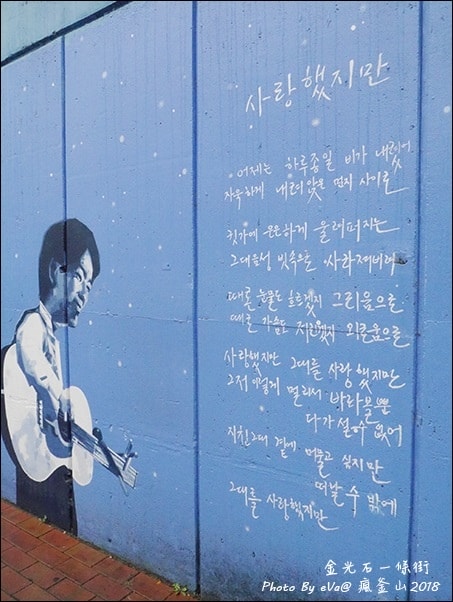 사랑했지만
어제는 하루종일 비가 내렸어
자욱하게 내려 앉은 먼지 사이로
귓가에 은은하게 울려퍼지는
그대음성 빗속으로 사라져버려
때론 눈물도 흐르겠지 그리움으로
때론 가슴도 저리겠지 외로움으로
사랑했지만 그대를 사랑했지만
그저 이렇게 멀리서 바라볼뿐
다가설수 없어
지친그대 곁에 머물고 싶지만
떠날 수 밖에
그대를 사랑했지만
金光石一條街
Photo By eVa@ 瘋釜山 2018